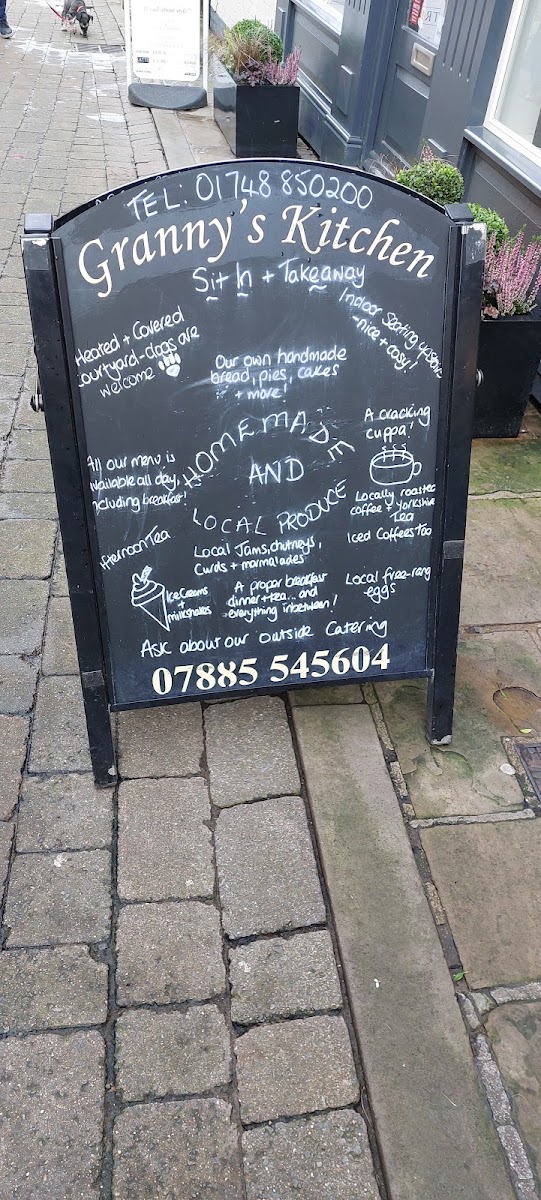 TEL: 01748 850200
Granny's Kitchen
Sit in + Takeaway
Heated + Covered
courtyard-dogs are
welcome
Indoor Seating upstairs
-nice + cosy!
Our own handmade
bread, pies, cakes
+ more!
A cracking
cuppa!
HOMEMADE
AND
LOCAL PRODUCE
All our menu is
available all day,
including breakfast!
Locally roasted
coffee + Yorkshire
Tea
Iced Coffees Too
Afternoon Tea
Local Jams, chutneys,
curds + marmalades
Ice Creams
+
milkshakes
A proper breakfast
dinner + tea... and
everything inbetween!
Local free-range
eggs
Ask about our outside Catering
07885 545604